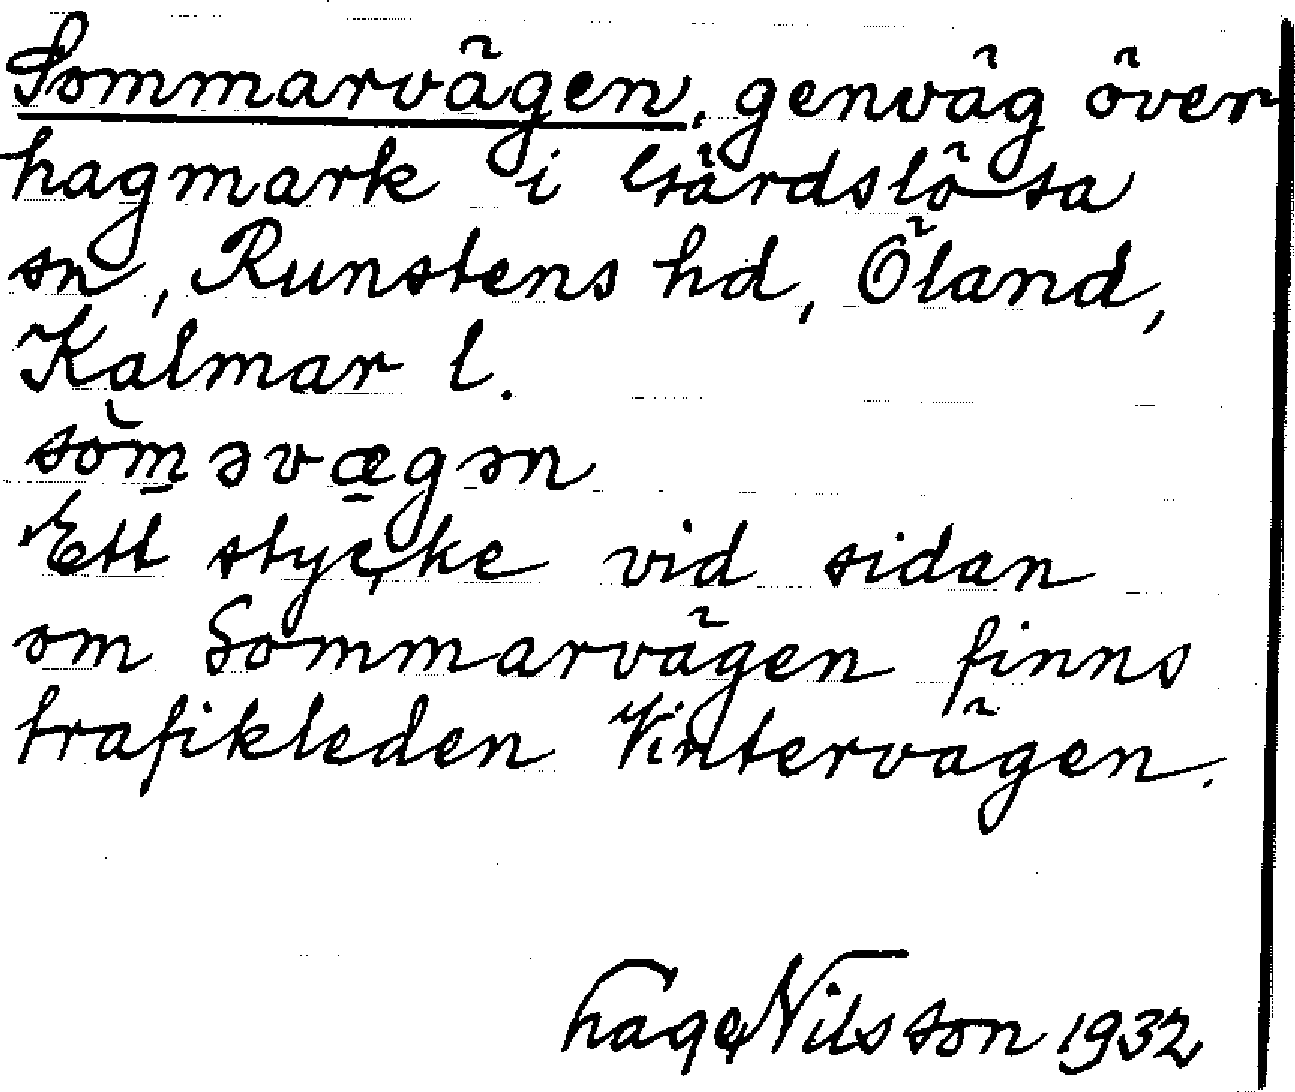 Sommarvägen, genväg över
hagmark i Gärdslösa
sn, Runstens hd, Öland,
Kalmar l.
sòm̲əvæ̲gən
Ett stycke vid sidan
om Sommarvägen finns
trafikleden Vintervägen.
Nilsson 1932